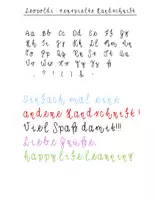 Leopoldi - renovierte Handschrift
Aa Bb Cc Dd Ee Ff Gg
Hh Ii Jj Kk Ll Mm Nn
Oo Pp Qq Rr Ss Tt Uu
Vv Ww Xx Yy Zz ß
, ? ! ( ) & -
Einfach mal eine
andere Handschrift!
Viel Spaß damit!!!
Liebe Grüße,
happylifelearning